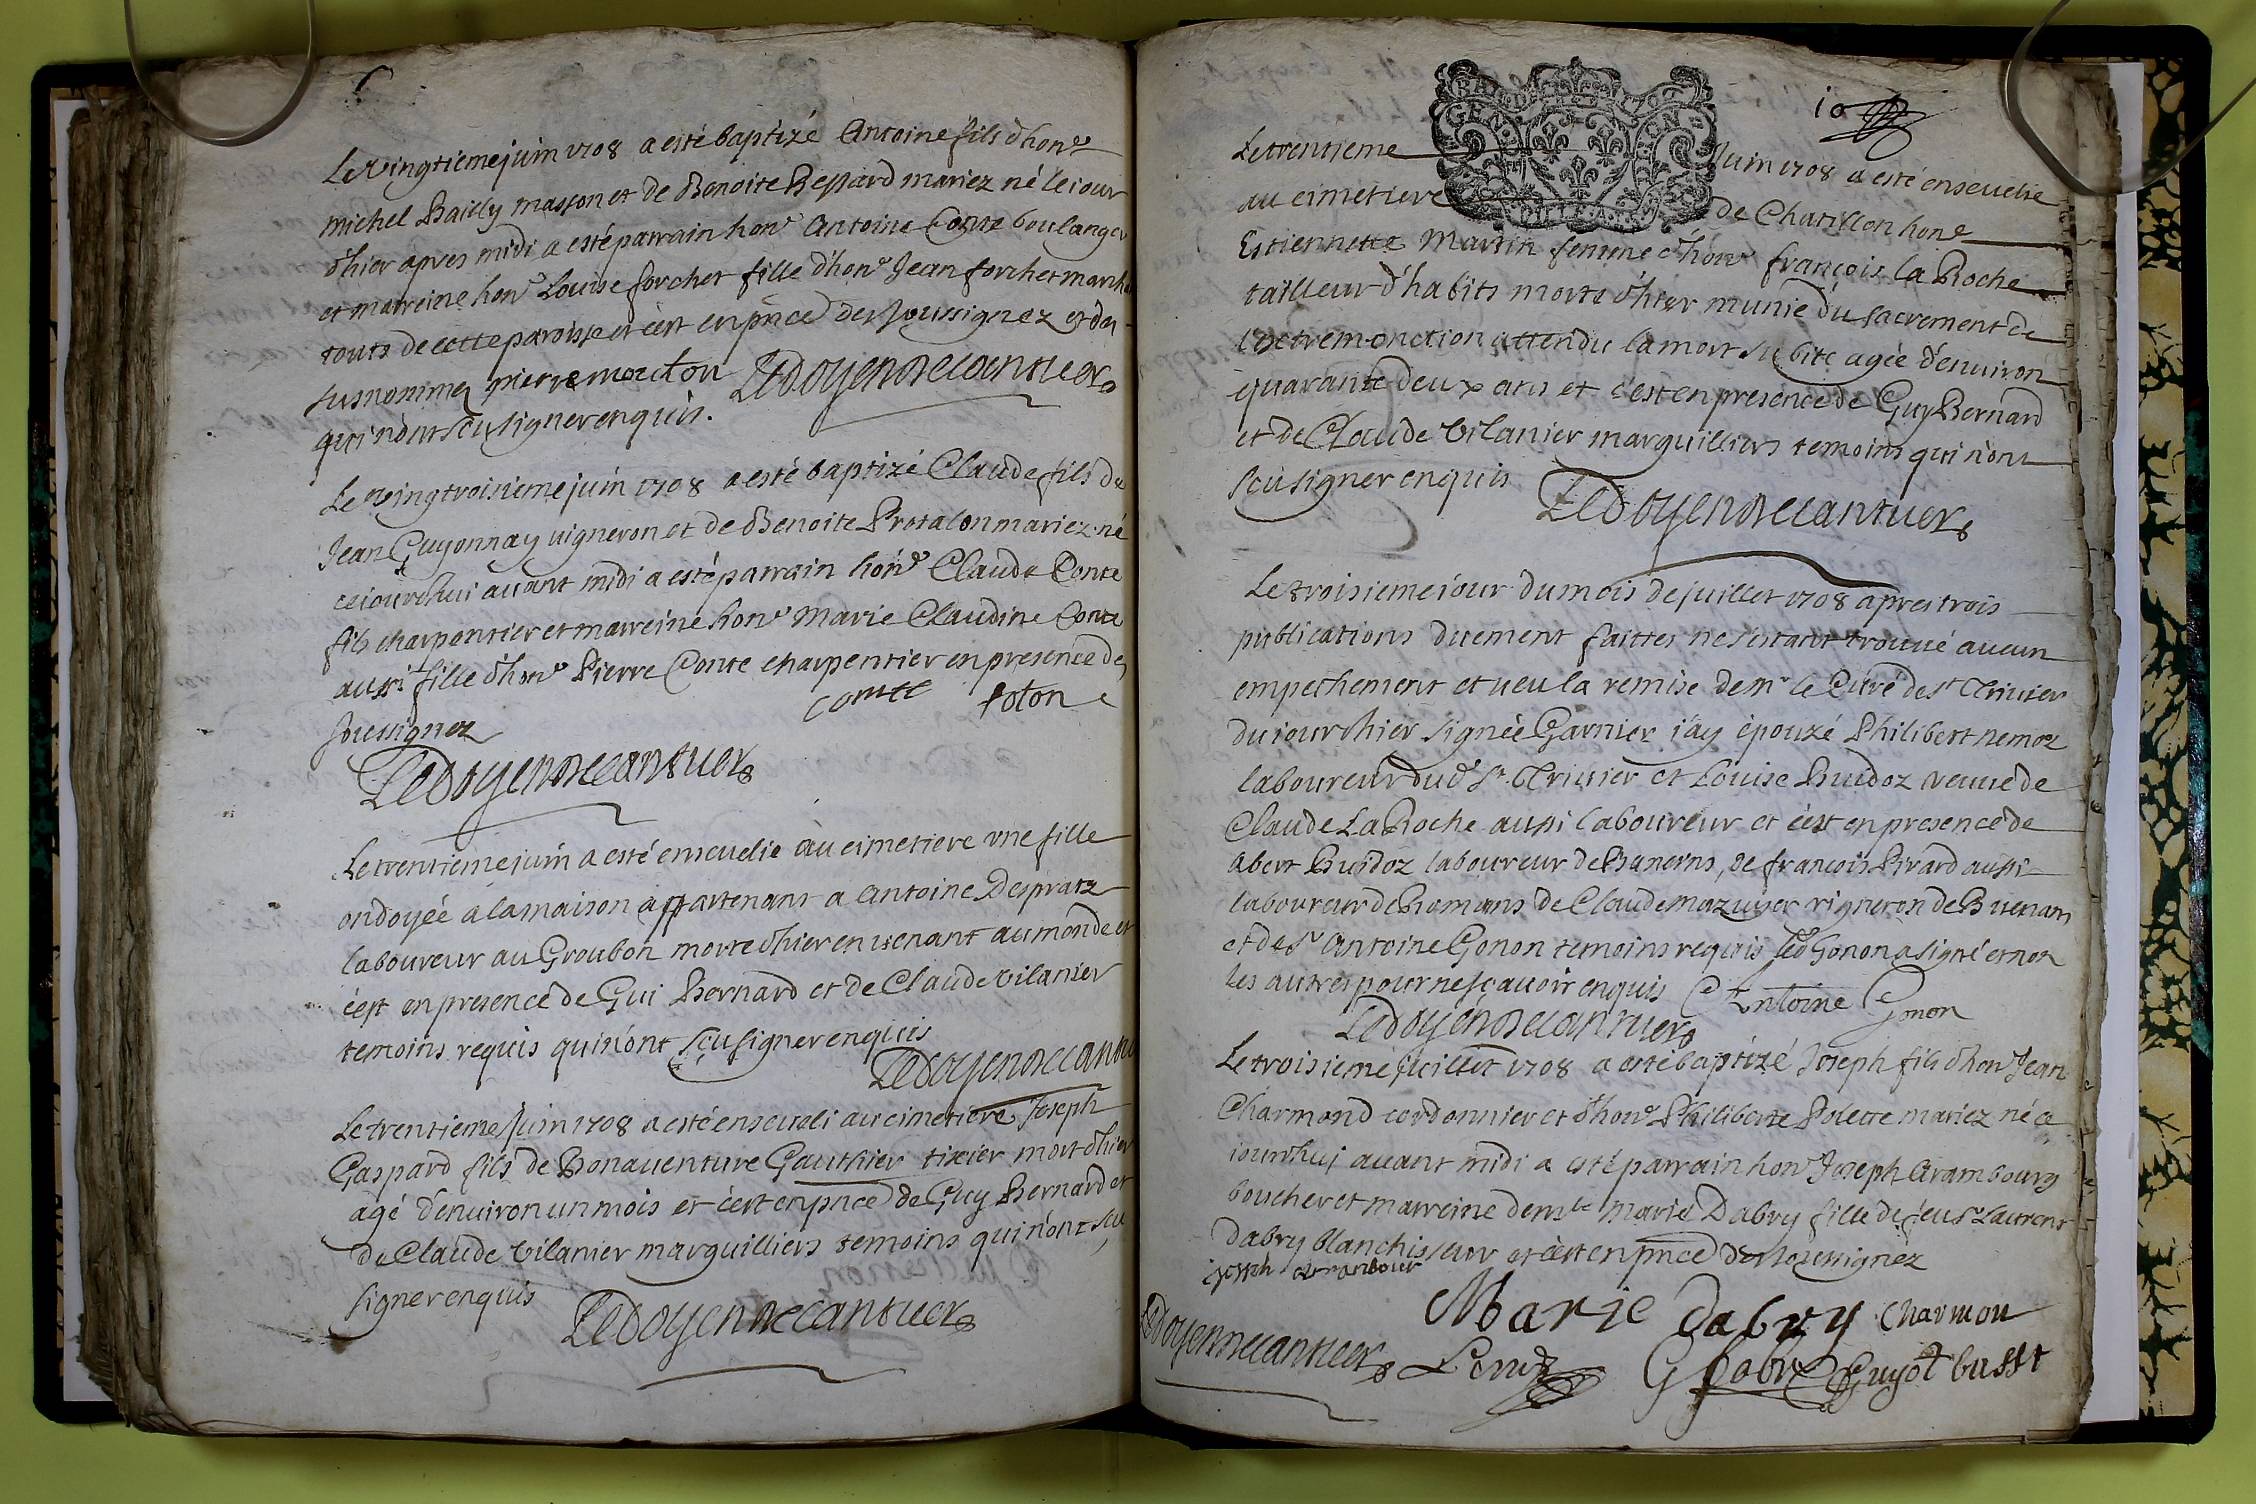 Le vingtieme juin 1708 a esté baptizé Antoine fils d'hon^e
michel Bailly masson et de Benoite Bessard mariez né le iour
d'hier apres midi a esté parrain hon^e Antoine Conte boulanger
et marreine hon^e Louise forchet fille d'hon^e Jean forchet march
touts de cette paroisse et c'est en pñce des soussignez et des
susnommez pierre mouton Ledoyen
qui n'ont sçu signer enquis.
Le vingtroisieme juin 1708 a esté baptizé Claude fils de
Jean Guyonnay uigneron et de Benoite Protalon mariez né
ceiourdhui auant midi a esté parrain hon^e Claude Conte
fils charpentier et marreine hon^e Marie Claudine Conte
aussi fille d'hon^e Pierre Conte charpentier en presence des
soussignez conte foton
Ledoyen
Le trentieme juin a esté enseuelie au cimetiere une fille
ondoyée a la maison appartenant a Antoine Despratz
laboureur au Groubon morte d'hier en uenant au monde et
c'est en presence de Gui Bernard et de Claude vilanier
temoins requis qui n'ont sçu signer enquis
Ledoyen
Le trentieme Juin 1708 a esté enseueli au cimetiere Joseph
Gaspard fils de Bonauenture Gauthier tixier mort d'hier
agé d'enuiron un mois et c'est en pñce de Guy Bernard et
de Claude Vilanier marguilliers temoins qui n'ont sçu
signer enquis
Ledoyen
10
Le trentieme Juin 1708 a esté enseuelie
au cimetiere de Chatillon hon^e
Estiennette Martin femme d'hon^e françois la Roche
tailleur d'habits morte d'hier munie du sacrement de
l'extremonction attendu la mort subite agée d'enuiron
quarante deux ans et c'est en presence de Guy Bernard
et de Claude Vilanier marguilliers temoins qui n'ont
sçu signer enquis
Ledoyen
Le troisieme iour du mois de juillet 1708 apres trois
publications duement faittes ne s'estant trouué aucun
empechement et ueu la remise de m^r le Curé de s^t Triuier
du iour d'hier signée Garnier i'ay épouzé Philibert nemoz
laboureur dud^t S^t Triuier et Louise Buidoz veuue de
Claude La Roche aussi laboureur et c'est en presence de
Abert Buidoz laboureur de Banerns, de françois Pirard aussi
laboureur de Romans de Claude mazuyer vigneron de Buenans
et de s^r Antoine Gonon temoins requis led Gonon a signé et non
les autres pour ne sçauoir enquis Antoine Gonon
Ledoyen
Le troisieme juillet 1708 a esté baptizé Joseph fils d'hon^e Jean
Charmond cordonnier et d'hon^e Philiberte Polette mariez né ce
iourdhuj auant midi a esté parrain hon^e Joseph Arambourg
boucher et marreine dem^lle Marie Dabry fille de feu s^r Laurent
Dabry blanchisseur et c'est en pñce des soussignez
Marie dabry Charmon
Ledoyen Guyot